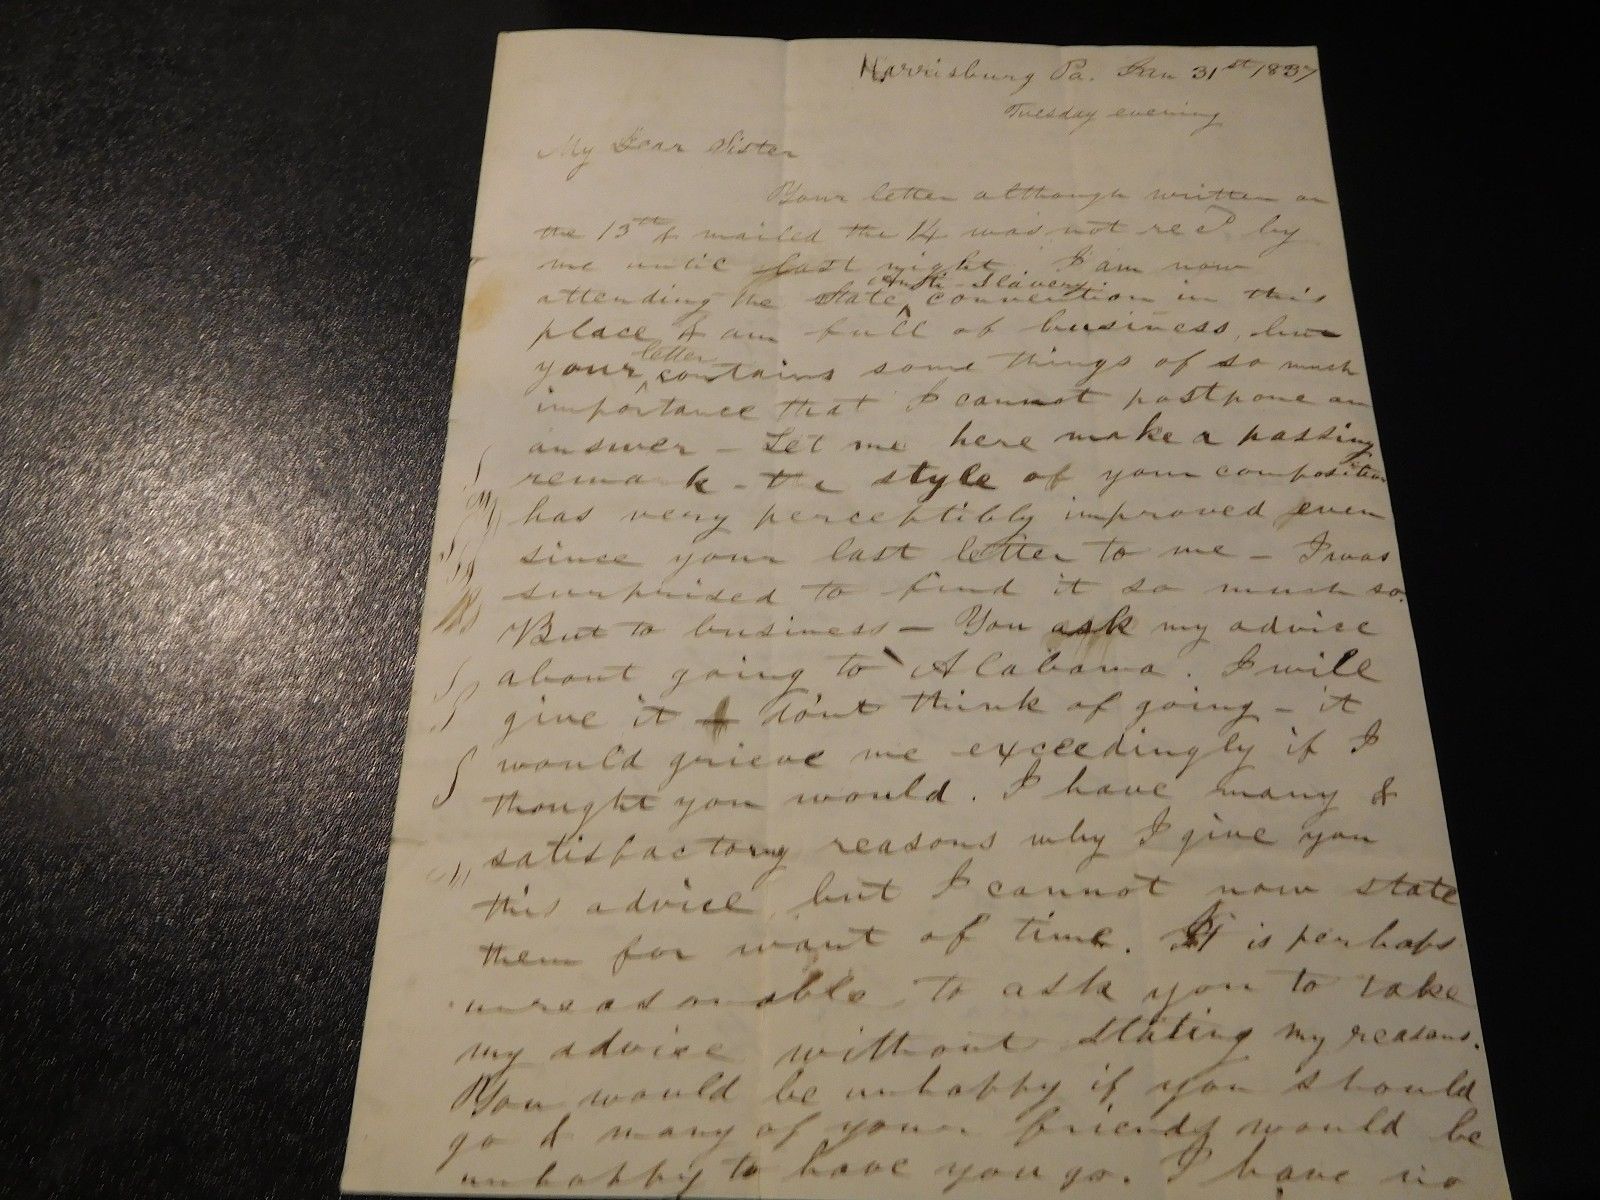 Harrisburg Pa. Jan 31st 1837
Tuesday evening
My Dear Sister
Your letter although written on
the 13th & mailed the 14 was not rec'd by
me until last night I am now
attending the State Anti-Slavery convention in this
place & am full of business, but
your letter contains some things of so much
importance that I cannot postpone an
answer - Let me here make a passing
remark - the style of your composition
has very perceptibly improved even
since your last letter to me - I was
surprised to find it so much so.
But to business - You ask my advice
about going to Alabama. I will
give it - don't think of going - it
would grieve me exceedingly if I
thought you would. I have many &
satisfactory reasons why I give you
this advice, but I cannot now state
them for want of time. It is perhaps
unreasonable to ask you to take
my advice without stating my reasons.
You would be unhappy if you should
go & many of your friends would be
unhappy to have you go. I have no